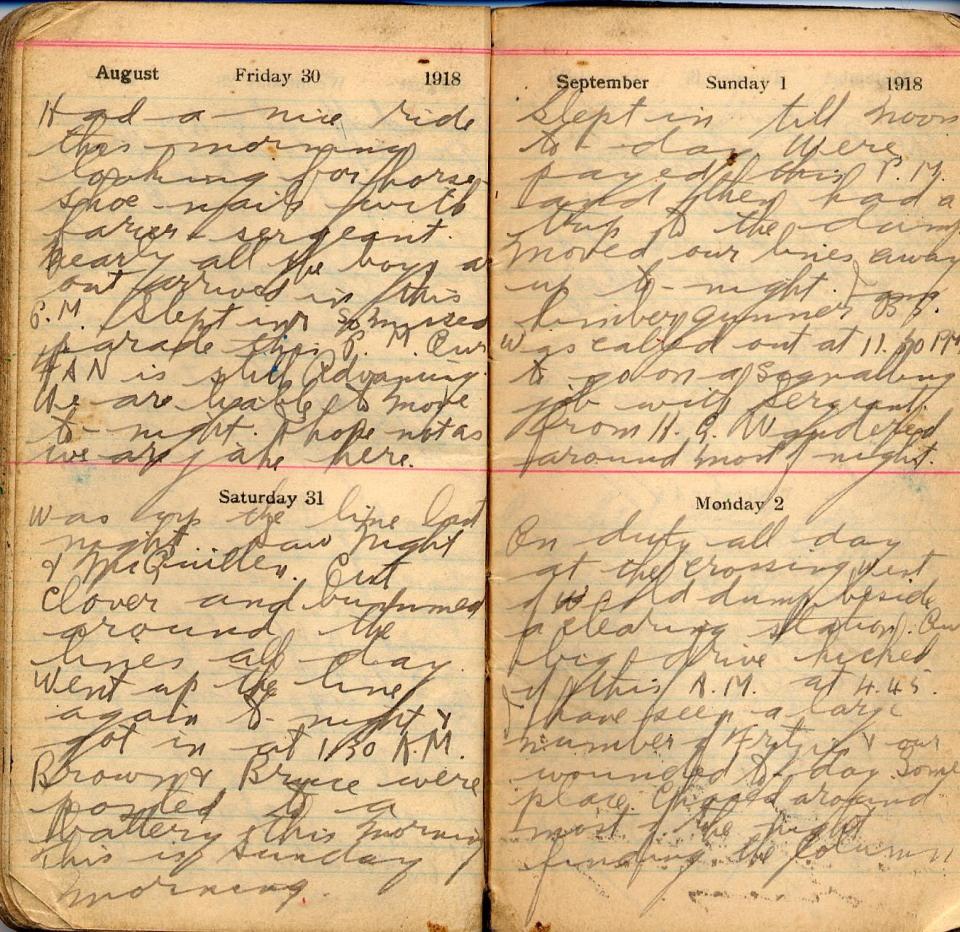 August Friday 30 1918
Had a nice ride
this morning
looking for horse
shoe nails with
farier sergeant.
Nearly all the boys
out arrived in this
P.M. Slept in & missed
parade this P.M. Our
is still advancing.
We are liable to move
to-night. I hope not as
we are jake here.
Saturday 31
Was up the line last
night saw Night
& McQuillen. Cut
clover and bummed
around the
lines all day.
Went up the line
again to-night &
got in at 1.30 A.M.
Brown & Bruce were
posted to a
battery this morning
this is Sunday
morning.
September Sunday 1 1918
Slept in till noon
to-day. Were
payed this P.M.
and then had a
trip to the dump
moved our lines away
up to-night. I am
limber gunner
Was called out at 11.30 PM
to go on a signalling
job with Sergeant
from H.Q. Wandered
around most of night.
Monday 2
On duty all day
at the crossing went
old dump beside
a clearing station. Our
big drive kicked
off this A.M. at 4.45.
I have seen a large
number of Fritzie & our
wounded to-day. Some
place. Chased around
most of the night
finding the column